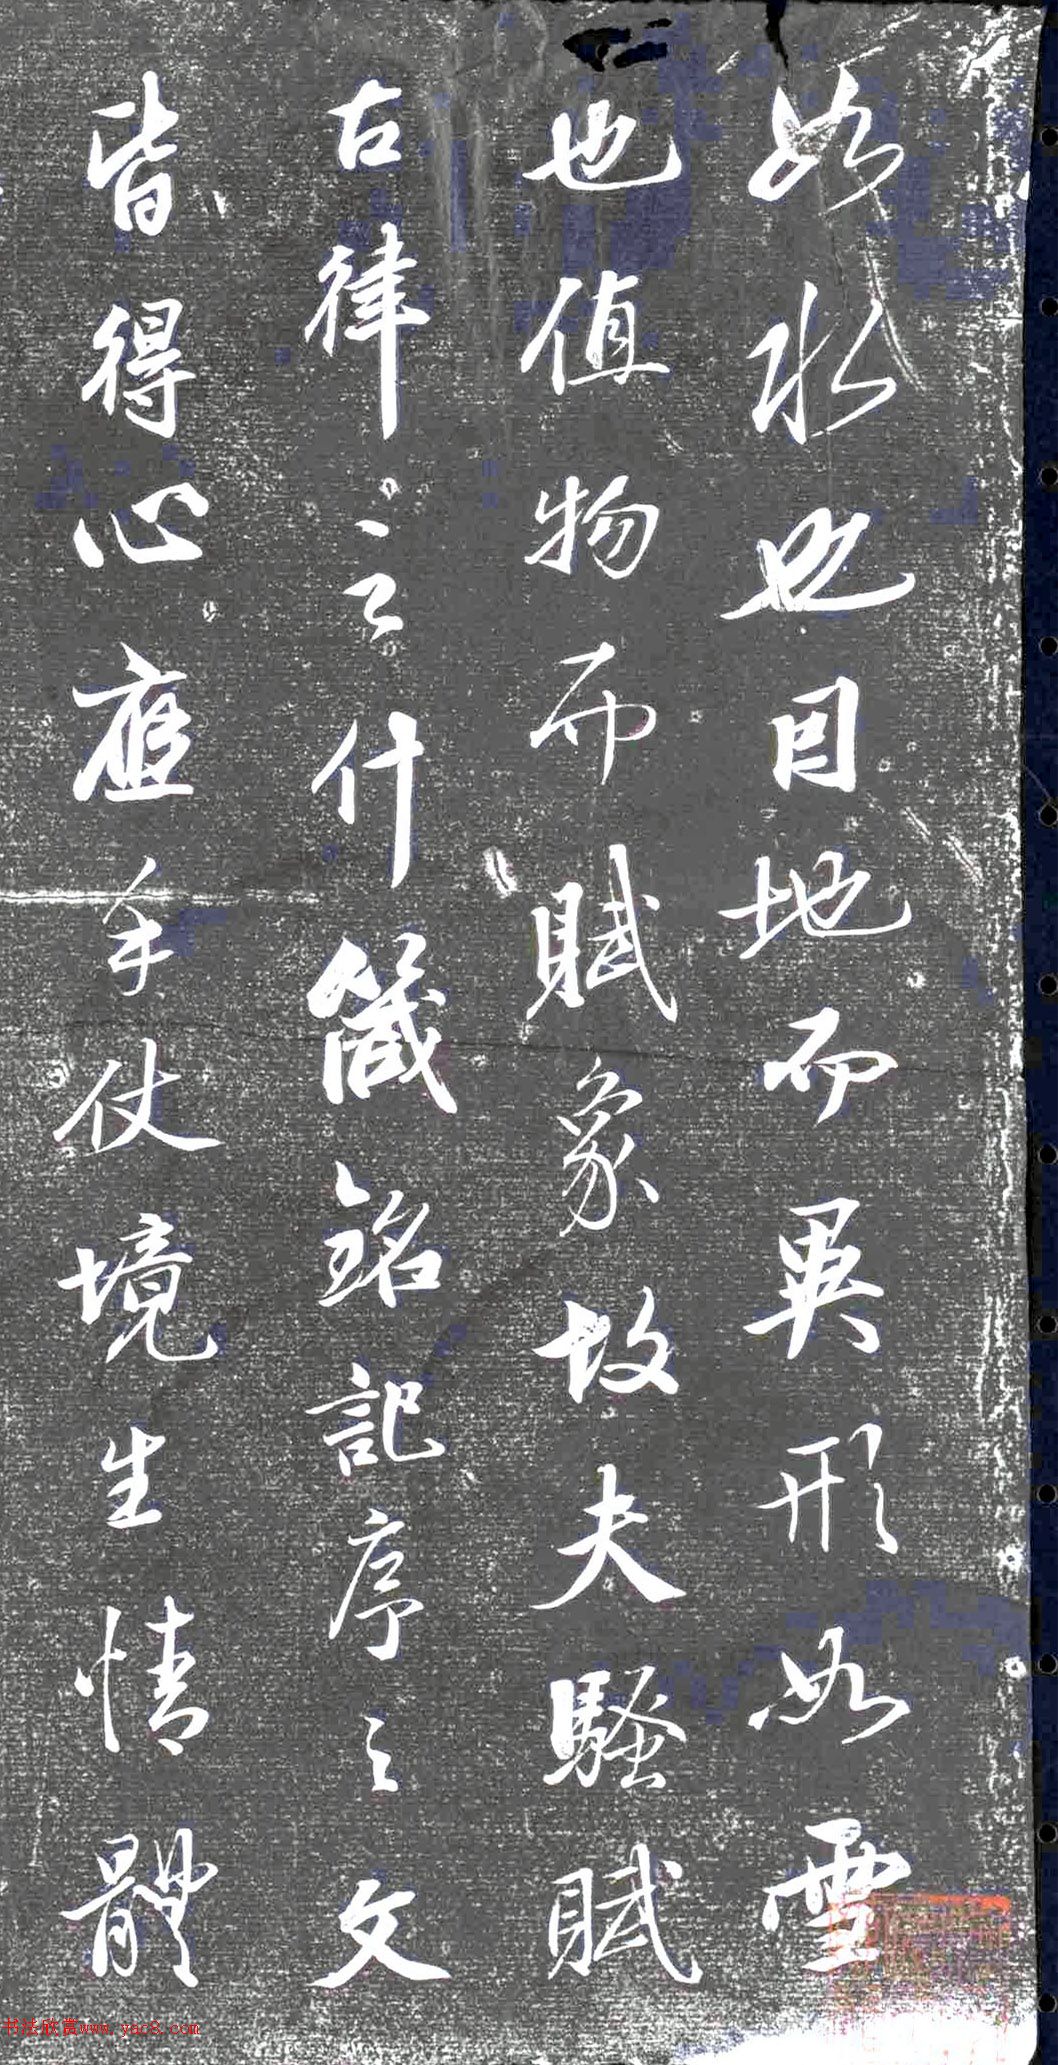 如水也因地而異形如雲
也值物而賦象故夫騷賦
古律之什箴銘記序之文
皆得心應手仗境生情體
书法欣赏www.yac8.com